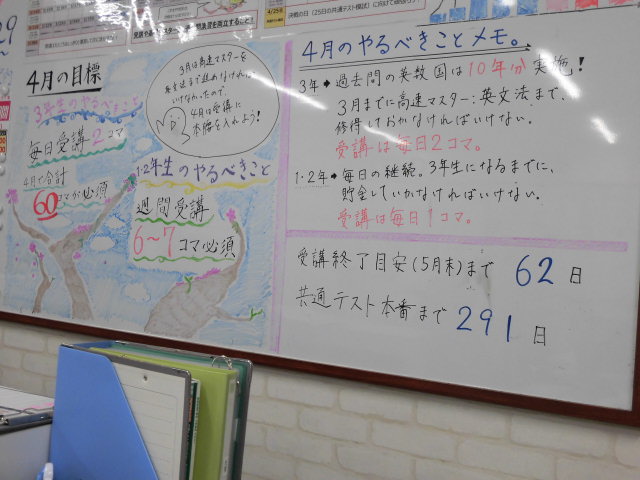 4月の目標
3年生のやるべきこと
毎日受講2コマ
4月で合計
60コマが必須
3月は高速マスターを
英文法まで進めなければ
いけなかったので、
4月は受講に
本腰を入れよう！
1・2年生のやるべきこと
週間受講
6〜7コマ必須
4月のやるべきことメモ。
3年→過去問の英数国は10年分実施！
3月までに高速マスター：英文法まで、
修得しておかなければいけない。
受講は毎日2コマ。
1・2年→毎日の継続。3年生になるまでに、
貯金していかなければいけない。
受講は毎日1コマ。
受講終了目安(5月末)まで 62日
共通テスト本番まで 291日